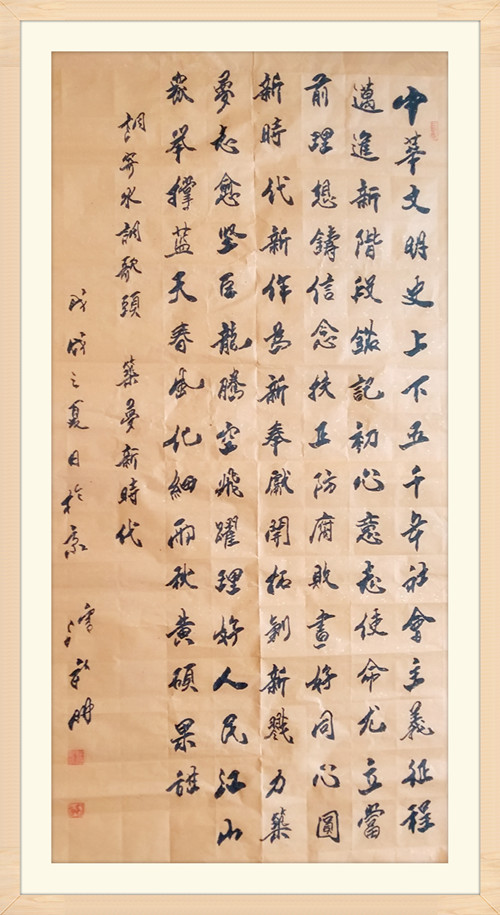 中華文明史上下五千年社會主義征程
邁進新階段銘記初心意志使命尤立當
前理想鑄信念扶正防腐敗畫好同心圓
新時代新作為新奉獻開拓創新戮力築
夢志愈堅巨龍騰空飛躍理好人民江山
眾舉撐藍天春風化細雨秋黃碩果甜
調寄水調歌頭 築夢新時代
戊戌之夏日於京